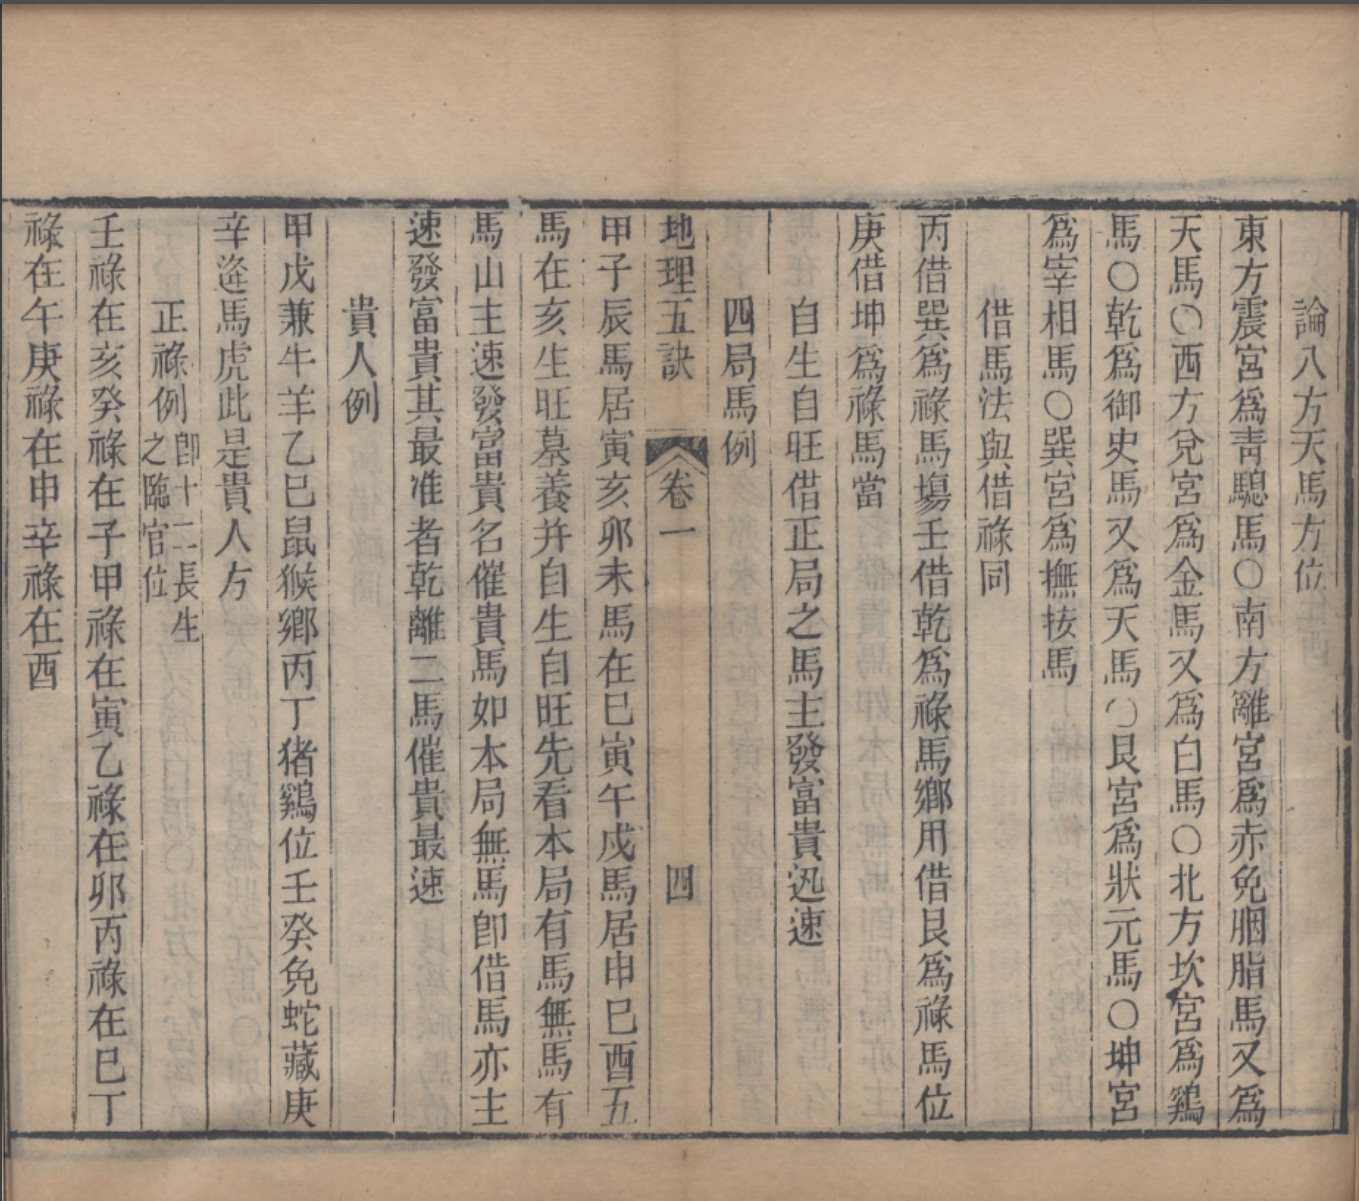 論八方天馬方位
東方震宮爲青驄馬〇南方離宮爲赤免胭脂馬又爲
天馬〇西方兌宮爲金馬又爲白馬〇北方坎宮爲鷄
馬〇乾爲御史馬又爲天馬〇艮宮爲狀元馬〇坤宮
爲宰相馬〇巽宮爲撫按馬
借馬法與借祿同
丙借巽爲祿馬塲壬借乾爲祿馬鄉用借艮爲祿馬位
庚借坤爲祿馬當
自生自旺借正局之馬主發富貴迅速
四局馬例
地理五訣 卷一 四
甲子辰馬居寅亥卯未馬在巳寅午戍馬居申巳酉五
馬在亥生旺墓養并自生自旺先看本局有馬無馬有
馬山主速發富貴名催貴馬如本局無馬卽借馬亦主
速發富貴其最准者乾離二馬催貴最速
貴人例
甲戊兼牛羊乙巳鼠猴鄉丙丁猪鷄位壬癸免蛇藏庚
辛逄馬虎此是貴人方
正祿例卽十二長生
之臨官位
壬祿在亥癸祿在子甲祿在寅乙祿在卯丙祿在巳丁
祿在午庚祿在申辛祿在酉